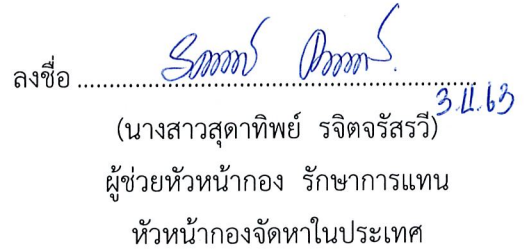 ลงชื่อ ................................................................
(นางสาวสุดาทิพย์ รจิตจรัสรวี)
ผู้ช่วยหัวหน้ากอง รักษาการแทน
หัวหน้ากองจัดหาในประเทศ